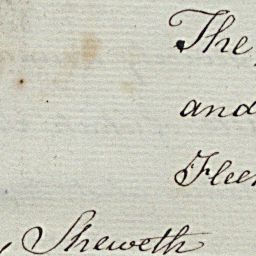 The
and
Flee
Sheweth